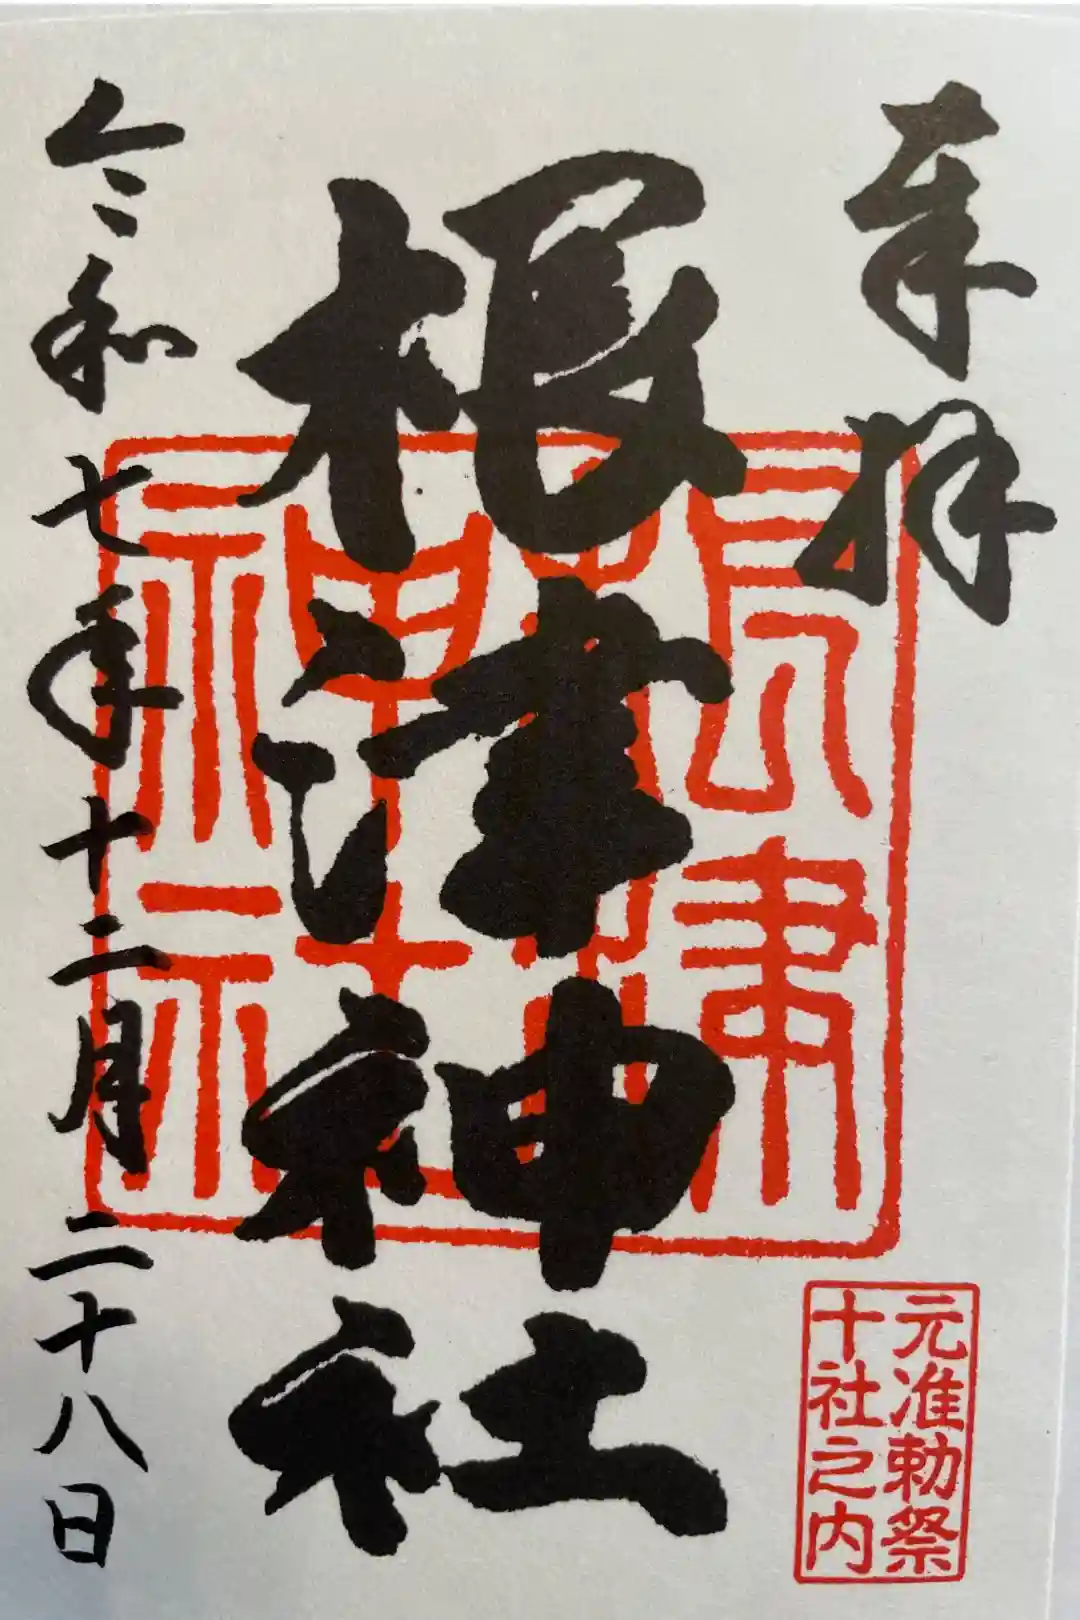 奉拝
根津神社
根津神社
元准勅祭
十社之内
令和七年十二月二十八日